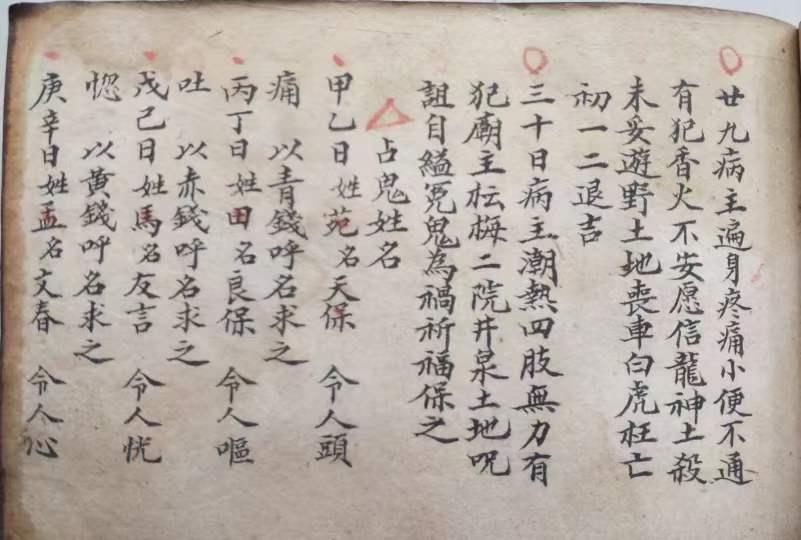 廿九病主遍身疼痛小便不通
有犯香火不安愿信龍神土殺
未妥遊野土地喪車白虎枉亡
初一二退吉
三十日病主潮熱四肢無力有
犯廟主坛梅二院井泉土地呪
詛自縊冤鬼為禍祈福保之
占鬼姓名
甲乙日姓苑名天保 令人頭
痛 以青錢呼名求之
丙丁日姓田名良保 令人嘔
吐 以赤錢呼名求之
戊己日姓馬名友言 令人恍
惚 以黃錢呼名求之
庚辛日姓孟名文春 令人心